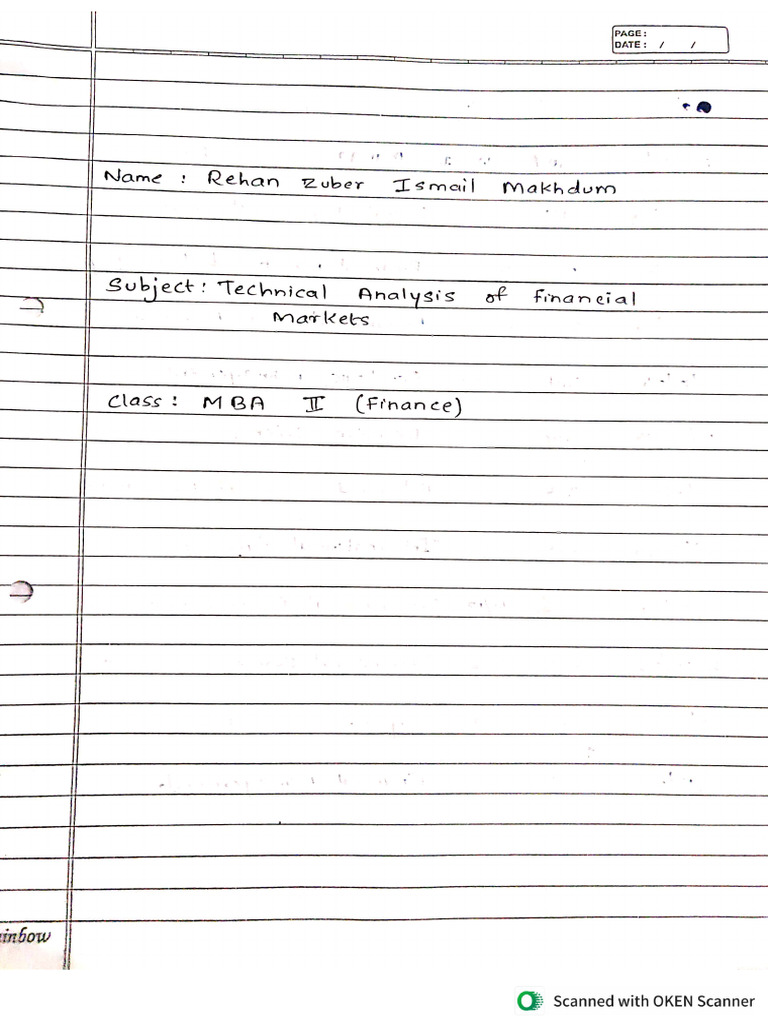 PAGE:
DATE: / /
Name : Rehan Zuber Ismail Makhdum
Subject: Technical Analysis of Financial
Markets
Class: MBA II (Finance)
inbow
Scanned with OKEN Scanner